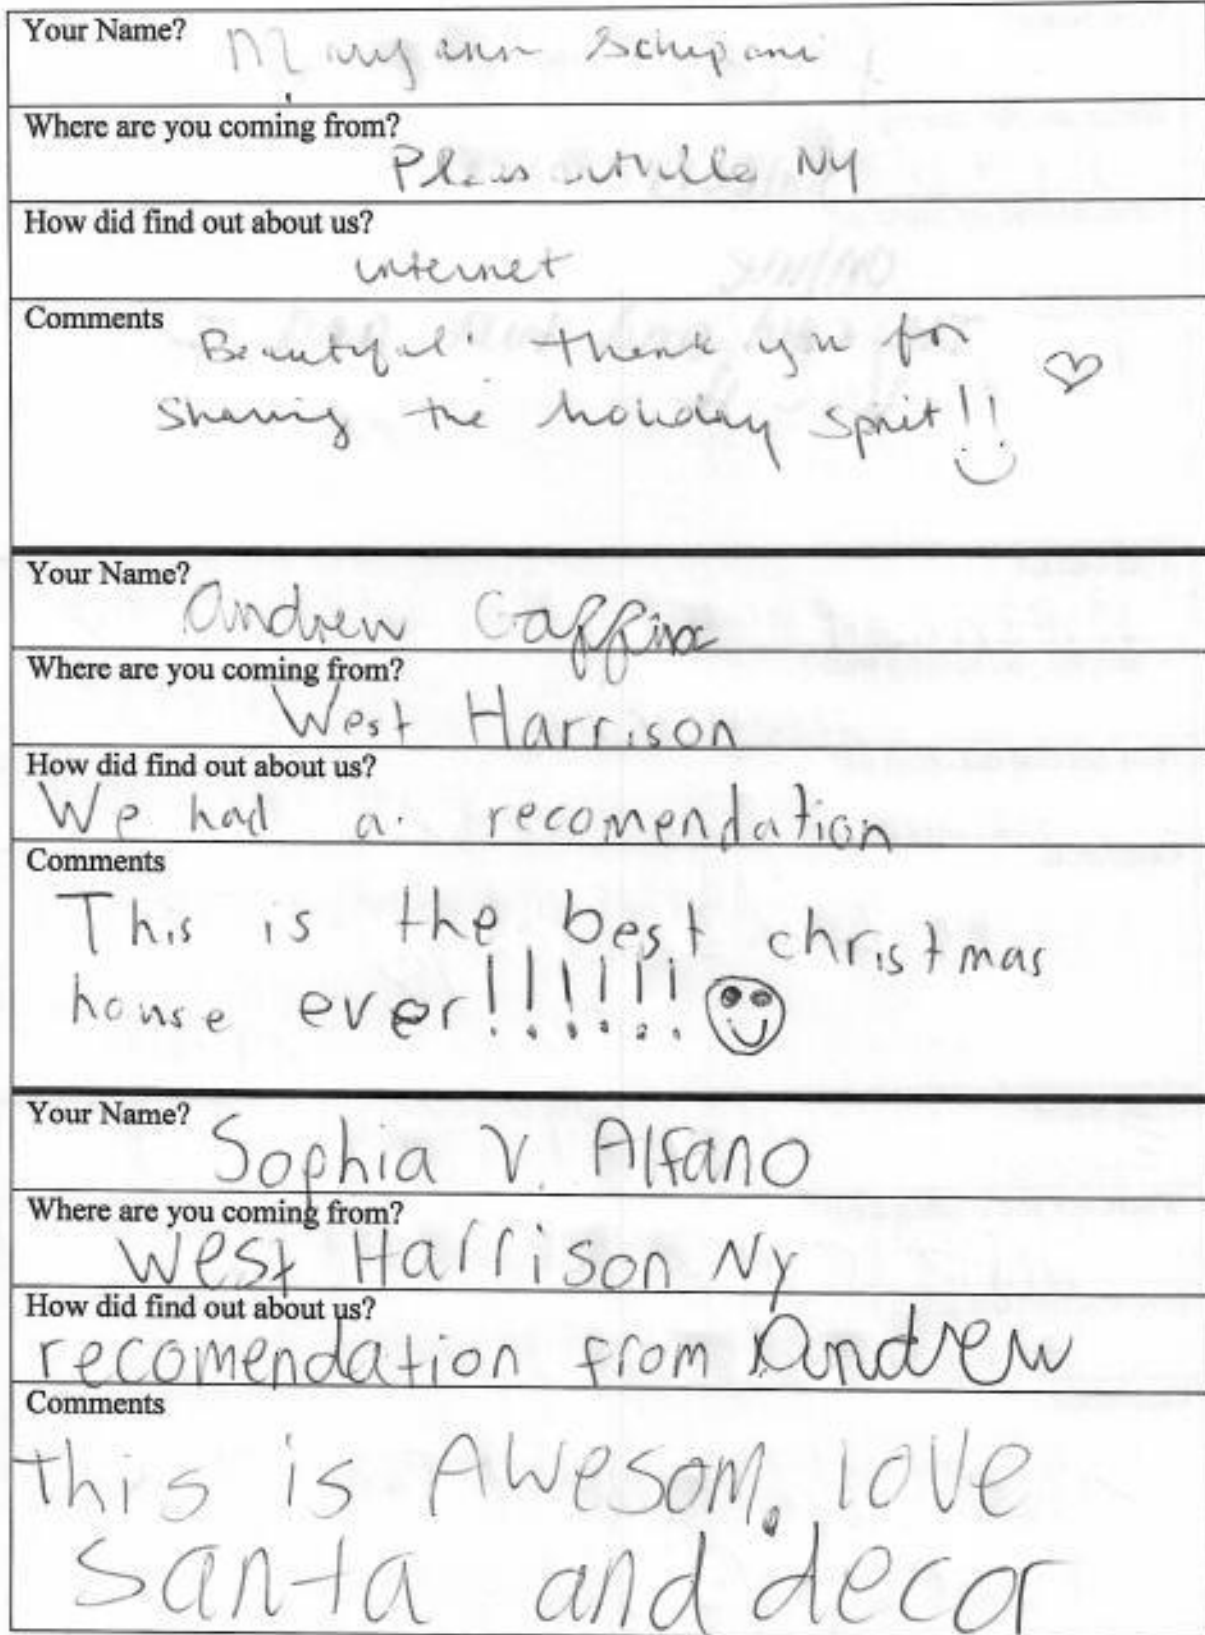 Your Name? Maryann Schipani
Where are you coming from?
Pleasantville NY
How did find out about us?
internet
Comments
Beautiful! thank you for
sharing the holiday spirit!!
Your Name?
Andrew
Where are you coming from?
West Harrison
How did find out about us?
We had a recomendation
Comments
This is the best christmas
house ever!!!!!!
Your Name?
Sophia V. Alfano
Where are you coming from?
West Harrison Ny
How did find out about us?
recomendation from Andrew
Comments
this is AWesom. love
Santa and decor